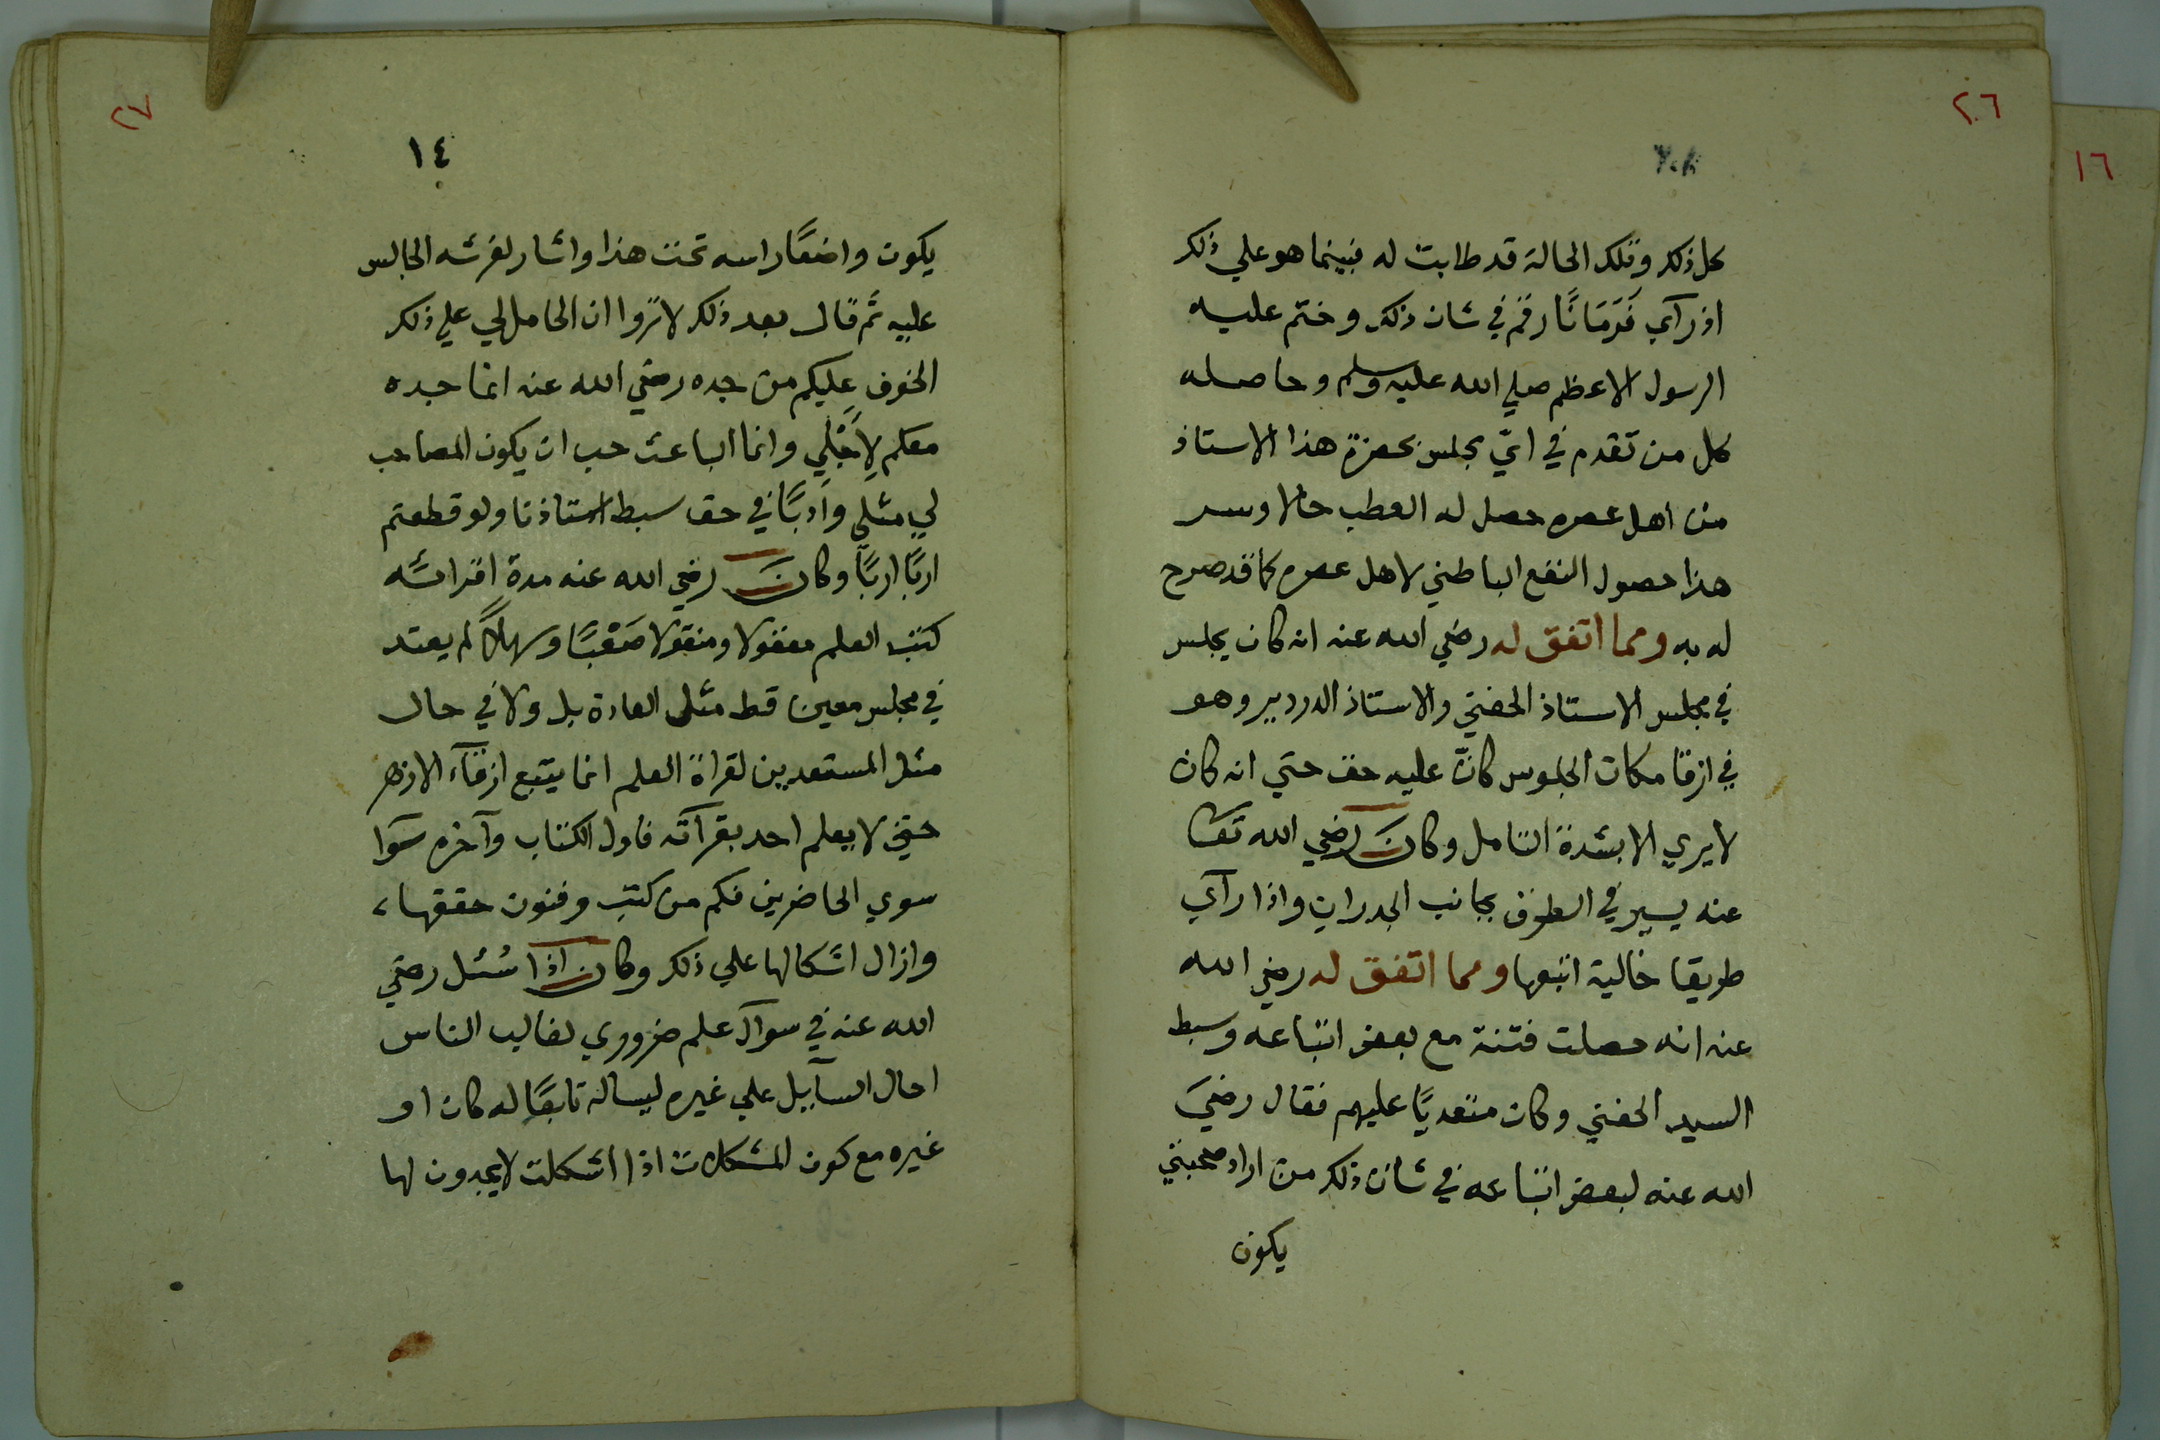 ٢٦
كل ذلك وتلك الحالة قد طابت له فبينما هو علي ذلك
اذ رآي فَرَمَانًا رقم في شان ذلك وختم عليه
الرسول الاعظم صلي الله عليه وسلم وحاصله
كل من تقدم في ايّ مجلس بحضرة هذا الاستاذ
من اهل عصره حصل له العطب حالا وسر
هذا حصول النفع الباطني لاهل عصره كما قد صرح
له به ومما اتفق له رضي الله عنه انه كان يجلس
في مجلس الاستاذ الحفني والاستاذ الدردير وهو
في ازقا مكان الجلوس كانّ عليه حق حتي انه كان
لا يري الا بشدة التامل وكان رضي الله تعا
عنه يسير في الطرق بجانب الجدران واذا رآي
طريقا خالية اتبعها ومما اتفق له رضي الله
عنه انه حصلت فتنة مع بعض اتباعه وسبط
السيد الحفني وكان متعديًا عليهم فقال رضيَ
الله عنه لبعض اتباعه في شان ذلك من اراد صحبتي
يكون
١٦
٢٧
١٤
يكون واضعًا راسه تحت هذا واشار لفرشه الجالس
عليه ثم قال بعد ذلك لا تروا ان الحامل لي علي ذلك
الخوف عليكم من جده رضي الله عنه انما جده
معكم لِاَجْلِي وانما الباعث حب ان يكون المصاحب
لي مثلي وادبًا في حق سبط استاذنا ولو قطعتم
اربًا اربًا وكان رضي الله عنه مدة اقرائه
كتب العلم معقولا ومنقولا صَعْبًا وسهلاً لم يعتد
في مجلس معين قط مثل العادة بل ولا في حال
مثل المستعدين لقراة العلم انما يتبع ازقآء الازهر
حتي لا يعلم احد بقرآته فاول الكتاب وآخره سَوَا
سوي الحاضرين فكم من كتب وفنون حققها،
وازال اشكالها علي ذلك وكان اذا سُئل رضي
الله عنه في سوال علم ضروري لغالب الناس
احال السآييل علي غيره ليساله تابعًا له كان او
غيره مع كون المشكلات اذا اشكلت لا يجدون لها